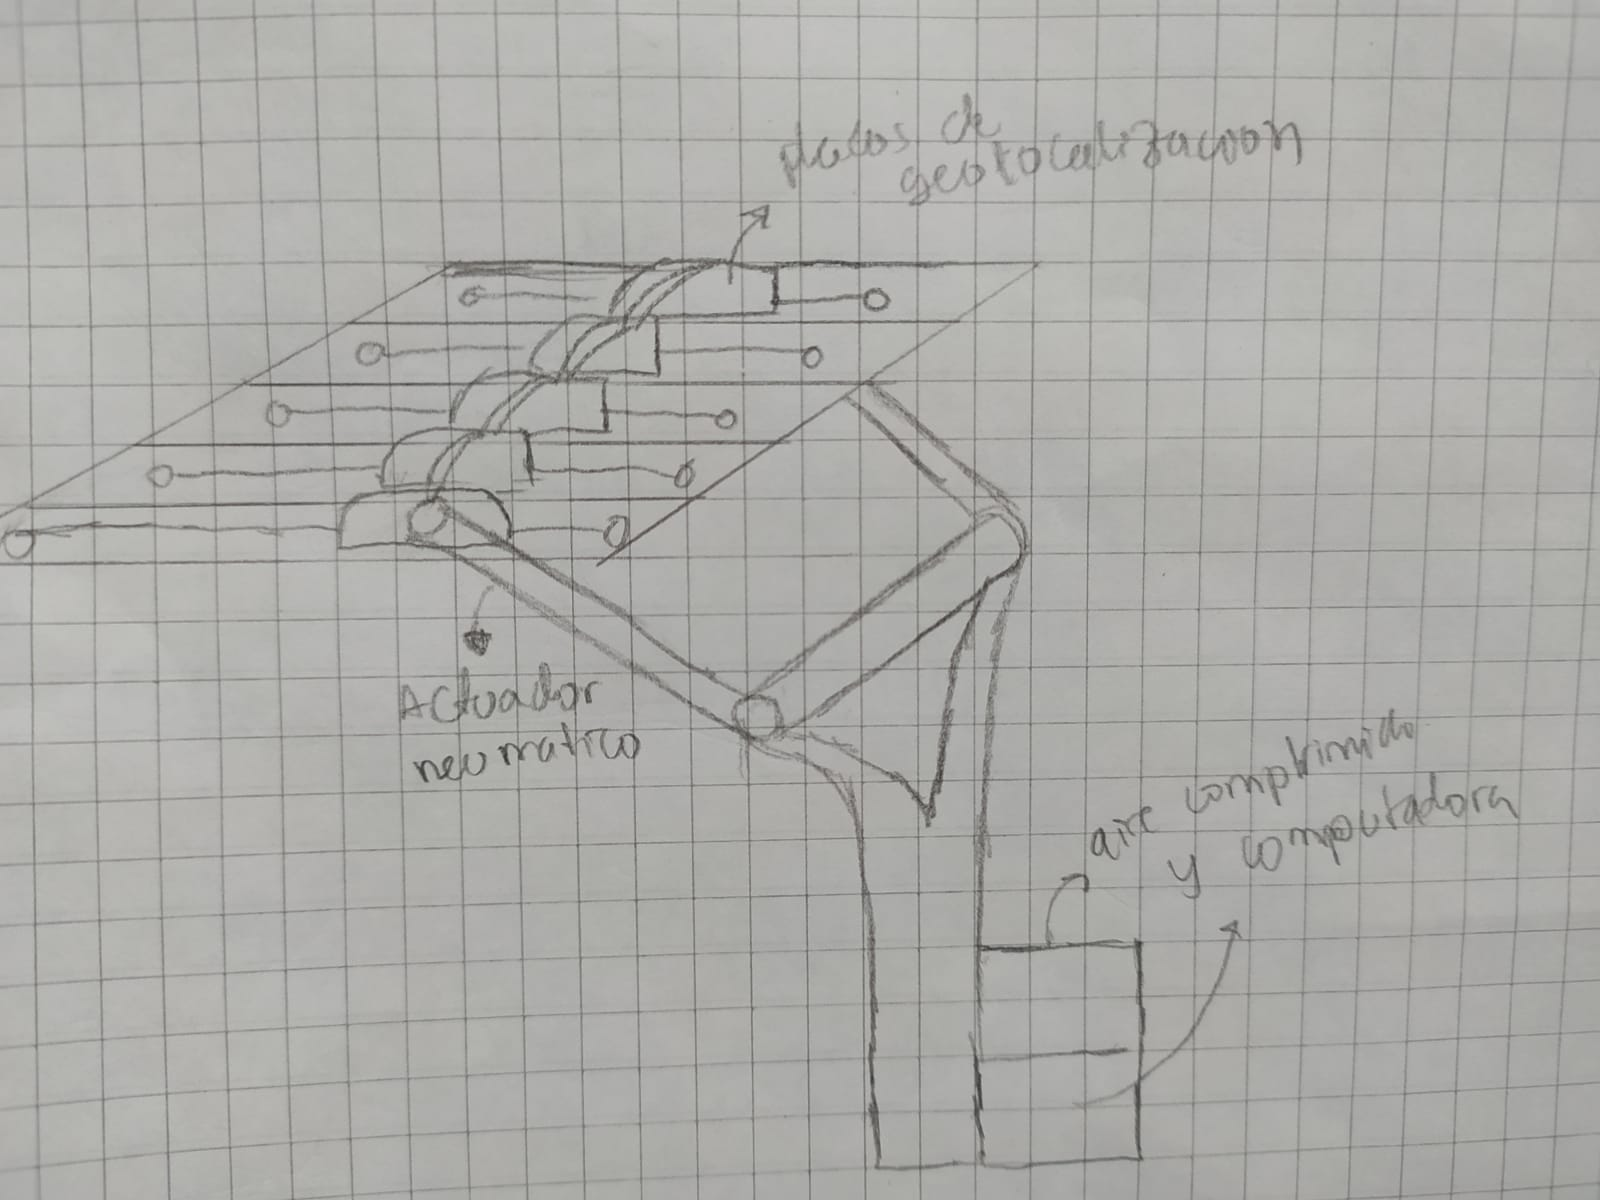 placas de
geolocalización
Actuador
neumatico
aire comprimido
y computadora